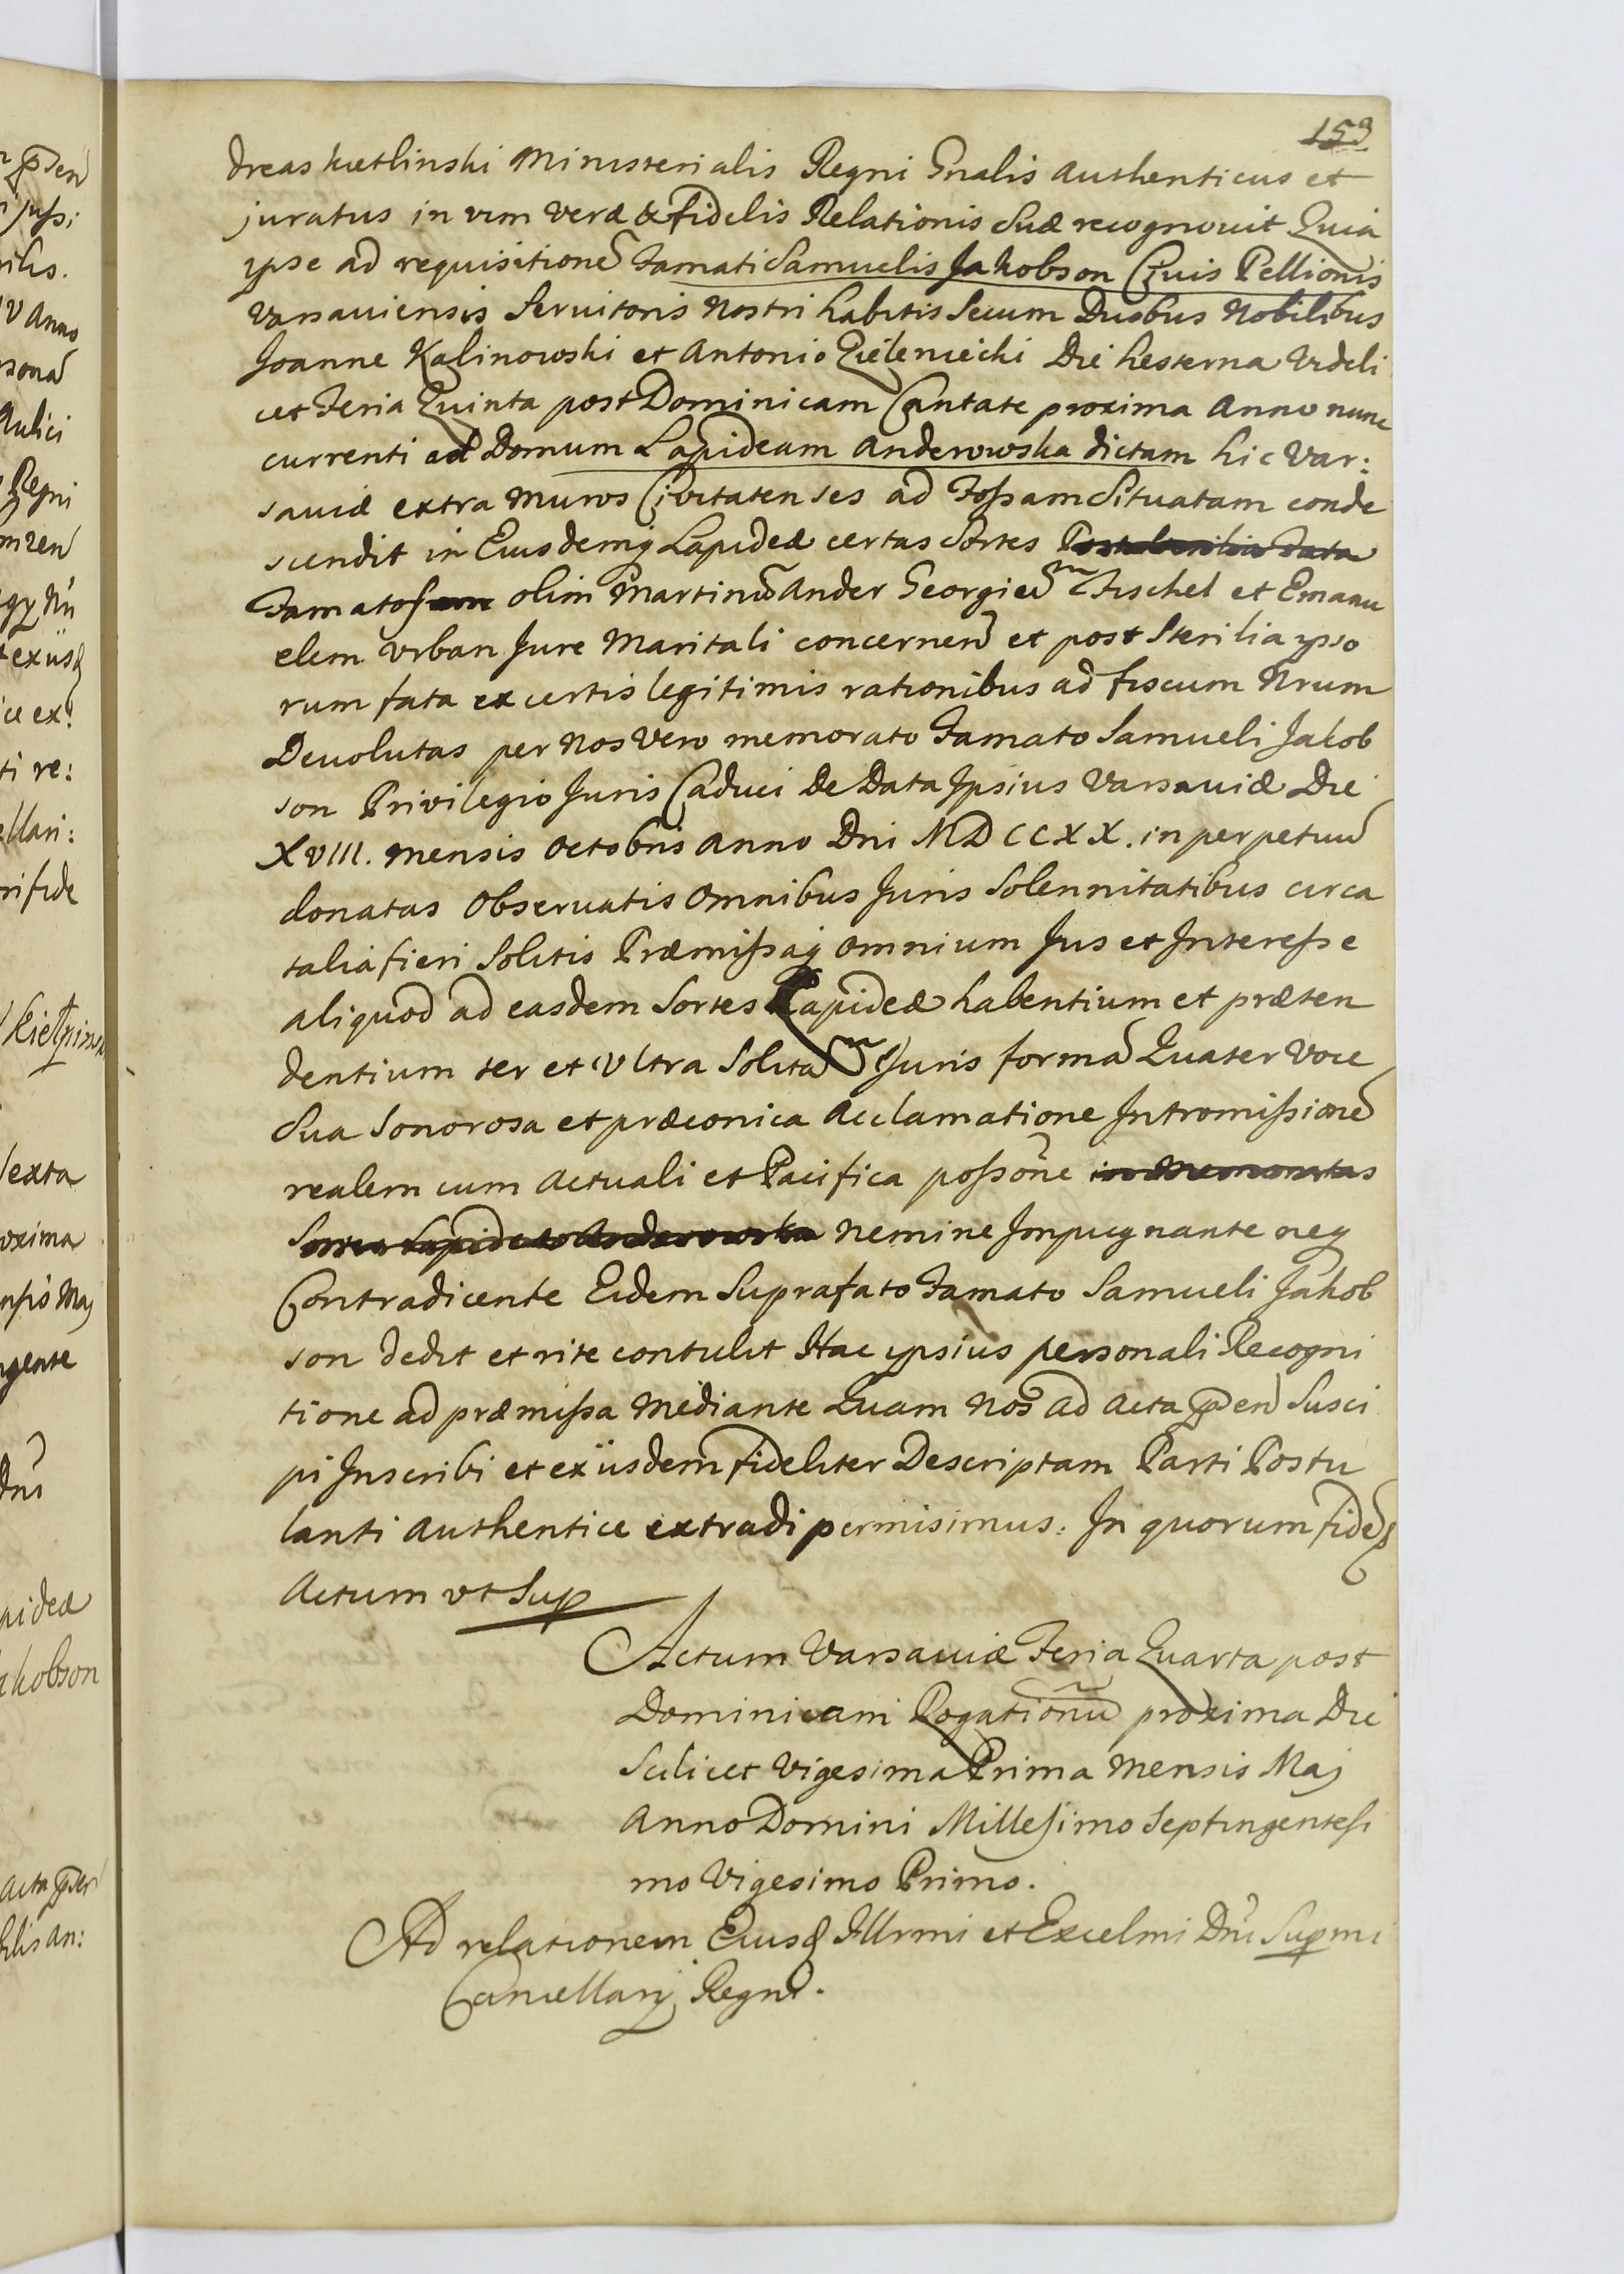 159
dreas Kietlinski Ministerialis Regni Gnalis Authenticus et
juratus in vim veræ & fidelis Relationis Suæ recognovit Quia
ipse ad requisitionē Famati Samuelis Jakobson Civis Pellionis
Varsaviensis Servitoris Nostri habitis Secum Duobus Nobilibus
Joanne Kalinowski et Antonio Zieleniecki Die hesterna Videli
cet Feria Quinta post Dominicam Cantate proxima Anno nunc
currenti ad Domum Lapideam Anderowska dictam hic Var:
saviæ extra muros Civitatenses ad Fossam Situatam conde
scendit in Eiusdemq Lapideæ certas Sortes Post sterilia Fata
Famatos olim Martinū Ander Georgiū Fischel et Emanu
elem Urban Jure Maritali concernen et post Sterilia ipso
rum fata ex certis legitimis rationibus ad fiscum Nrum
Devolutas per Nos Vero memorato Famato Samueli Jakob
son Privilegio Juris Caduci De Data Ipsius Varsaviæ Die
XVIII. mensis Octobris Anno Dni MDCCXX. in perpetuū
donatas Observatis Omnibus Juris Solennitatibus circa
talia fieri Solitis Præmissaq omnium Jus et Interesse
aliquod ad easdem Sortes Lapideæ habentium et præten
dentium ter et Ultra Solitam Juris formā Quater Voce
Sua Sonorosa et præconica Acclamatione Intromissionē
realem cum Actuali et Pacifica possōne in Memoratas
Sortes Lapideæ Anderowska nemine Impugnante neq
Contradicente Eidem Suprafato Famato Samueli Jakob
son dedit et rite contulit Hac ipsius personali Recogni
tione ad præmissa Mediante Quam Nos ad Acta pren Susci
pi Inscribi et ex iisdem fideliter Descriptam Parti Postu
lanti Authentice extradi permisimus: In quorum fidē
Actum ut Sup
Actum Varsaviæ Feria Quarta post
Dominicam Rogationū proxima Die
Scilicet Vigesima Prima Mensis Maj
Anno Domini Millesimo Septingentesi
mo Vigesimo Primo.
Ad relationem Eiusd Illrmi et Excelmi Dni Supmi
Cancellarij Regni.